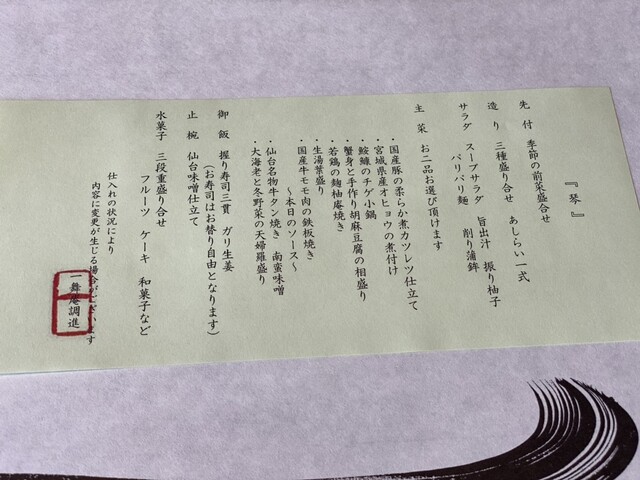 『琴』
先付 季節の前菜盛合せ
造り 三種盛り合せ あしらい一式
サラダ スープサラダ 旨出汁 振り柚子
パリパリ麺 削り蒲鉾
主菜 お二品お選び頂けます
・国産豚の柔らか煮カツレツ仕立て
・宮城県産オヒョウの煮付け
・鮟鱇のチゲ小鍋
・蟹身と手作り胡麻豆腐の相盛り
・若鶏の麹柚庵焼き
・生湯葉盛り
・国産牛モモ肉の鉄板焼き
～本日のソース～
・仙台名物牛タン焼き 南蛮味噌
・大海老と冬野菜の天婦羅盛り
御飯 握り寿司三貫 ガリ生姜
(お寿司はお替り自由となります)
止椀 仙台味噌仕立て
水菓子 三段重盛り合せ
フルーツ ケーキ 和菓子など
仕入れの状況により
内容に変更が生じる場合がございます
一舞庵調進